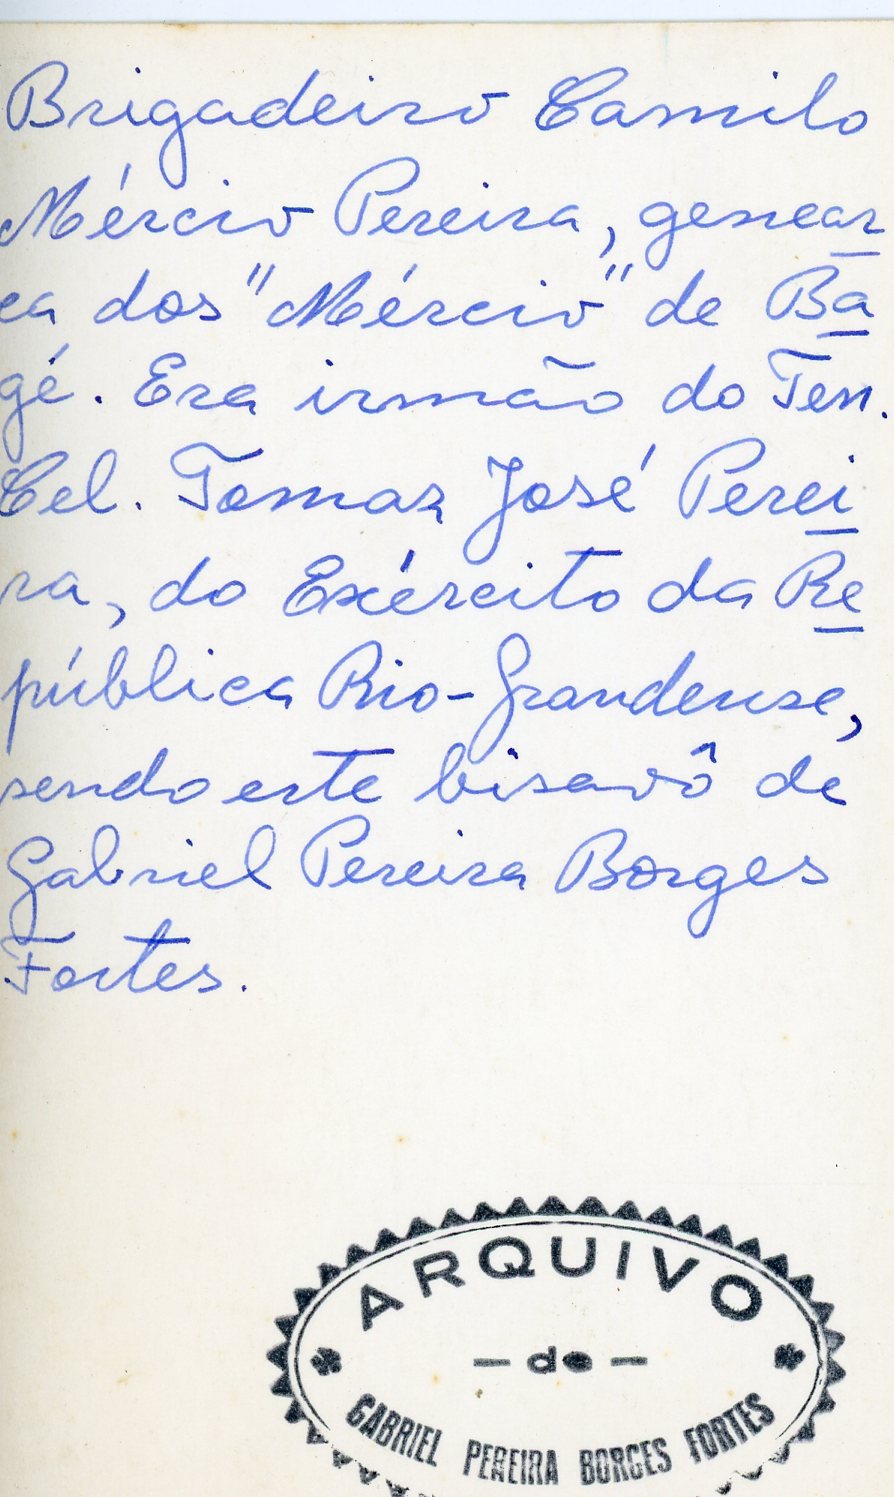 Brigadeiro Camilo
Mércio Pereira, genear
ca dos "Mércio" de Ba
gé. Era irmão do Ten.
Cel. Tomaz José Perei
ra, do Exército da Re
pública Rio-Grandense,
sendo este bisavô de
Gabriel Pereira Borges
Fortes.
ARQUIVO
— de —
GABRIEL PEREIRA BORGES FORTES